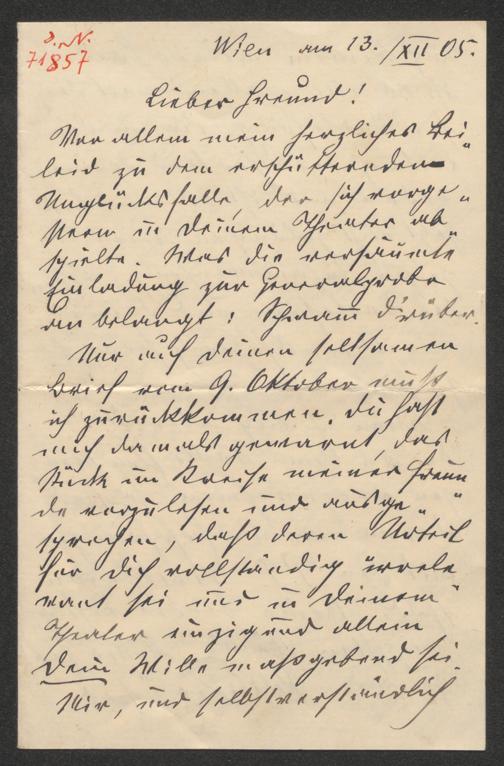 J. N.
71857
Wien am 13. /XII 05.
Lieber Freund!
Vor allem mein herzliches Bei„
leid zu dem erschütternden
Unglücksfalle, der sich vorge„
stern in Deinem Theater ab„
spielte. Was die versäumte
Einladung zur Generalprobe
an belangt: Schwamm d'rüber.
Nur auf Deinen seltsamen
Brief vom 9. Oktober muß
ich zurückkommen. Du hast
mich damals gewarnt, das
Stück im Kreise meiner Freun
de vorzulesen und ausge„
sprochen, daß deren Urteil
für Dich vollständig irrele
vant sei und in Deinem
Theater einzig und allein
Dein Wille maßgebend sei.
Mir, und selbstverständlich